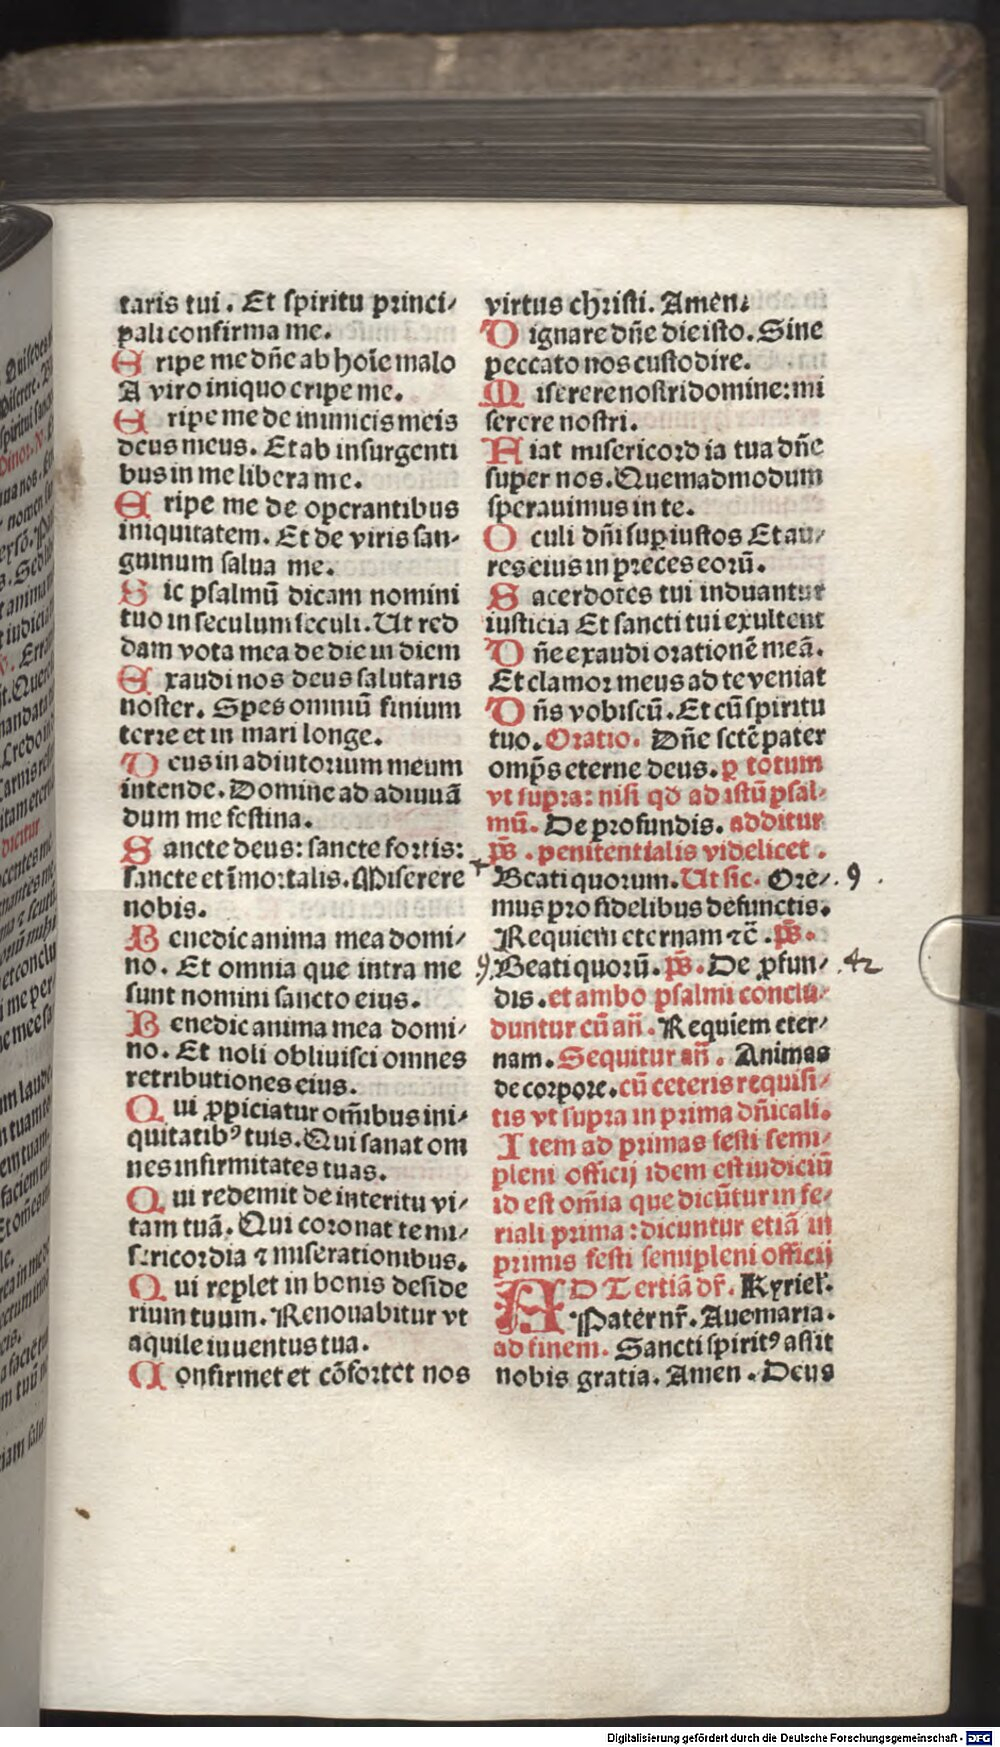 taris tui. Et spiritu princi/
pali confirma me.
Eripe me dñe ab hoīe malo
A viro iniquo eripe me.
Eripe me de inimicis meis
deus meus. Et ab insurgenti
bus in me libera me.
Eripe me de operantibus
iniquitatem. Et de viris san-
guinum salua me.
Sic psalmū dicam nomini
tuo in seculum seculi. Ut red
dam vota mea de die in diem
Exaudi nos deus salutaris
noster. Spes omniū finium
terre et in mari longe.
Deus in adiutorium meum
intende. Domine ad adiuuā
dum me festina.
Sancte deus: sancte fortis:
sancte et īmortalis. Miserere
nobis.
Benedic anima mea domi/
no. Et omnia que intra me
sunt nomini sancto eius.
Benedic anima mea domi/
no. Et noli obliuisci omnes
retributiones eius.
Qui ꝓpiciatur om̄ibus ini/
quitatibꝰ tuis. Qui sanat om
nes infirmitates tuas.
Qui redemit de interitu vi/
tam tuā. Qui coronat te mi/
sericordia ⁊ miserationibus.
Qui replet in bonis deside
rium tuum. Renouabitur vt
aquile iuuentus tua.
Confirmet et cōfortet nos
virtus christi. Amen.
Dignare dñe die isto. Sine
peccato nos custodire.
Miserere nostri domine: mi
serere nostri.
Fiat misericordia tua dñe
super nos. Quemadmodum
sperauimus in te.
Oculi dñi suꝑ iustos Et au/
res eius in preces eorū.
Sacerdotes tui induantur
iusticia Et sancti tui exultent
Dñe exaudi orationē meā.
Et clamor meus ad te veniat
Dñs vobiscū. Et cū spiritu
tuo. Oratio. Dñe sctē pater
omp̄s eterne deus. ꝑ totum
vt supra: nisi qd̄ ad istū psal-
mū. De profundis. additur
ps̄. penitentialis videlicet.
+ Beati quorum. Ut sic. Ore/. 9
mus pro fidelibus defunctis.
Requiem eternam ⁊c̄. ps̄.
9. Beati quorū. ps̄. De ꝓfun/. 42
dis. et ambo psalmi conclu-
duntur cū añ. Requiem eter/
nam. Sequitur añ. Animas
de corpore. cū ceteris requisi/
tis vt supra in prima dñicali.
Item ad primas festi semi/
pleni officij idem est iudiciū
id est om̄ia que dicūtur in fe/
riali prima: dicuntur etiā in
primis festi semipleni officij
AD Tertiā dr̄. Kyriel̄.
Pater nr̄. Aue maria.
ad finem. Sancti spiritꝰ assit
nobis gratia. Amen. Deus
Digitalisierung gefördert durch die Deutsche Forschungsgemeinschaft - DFG